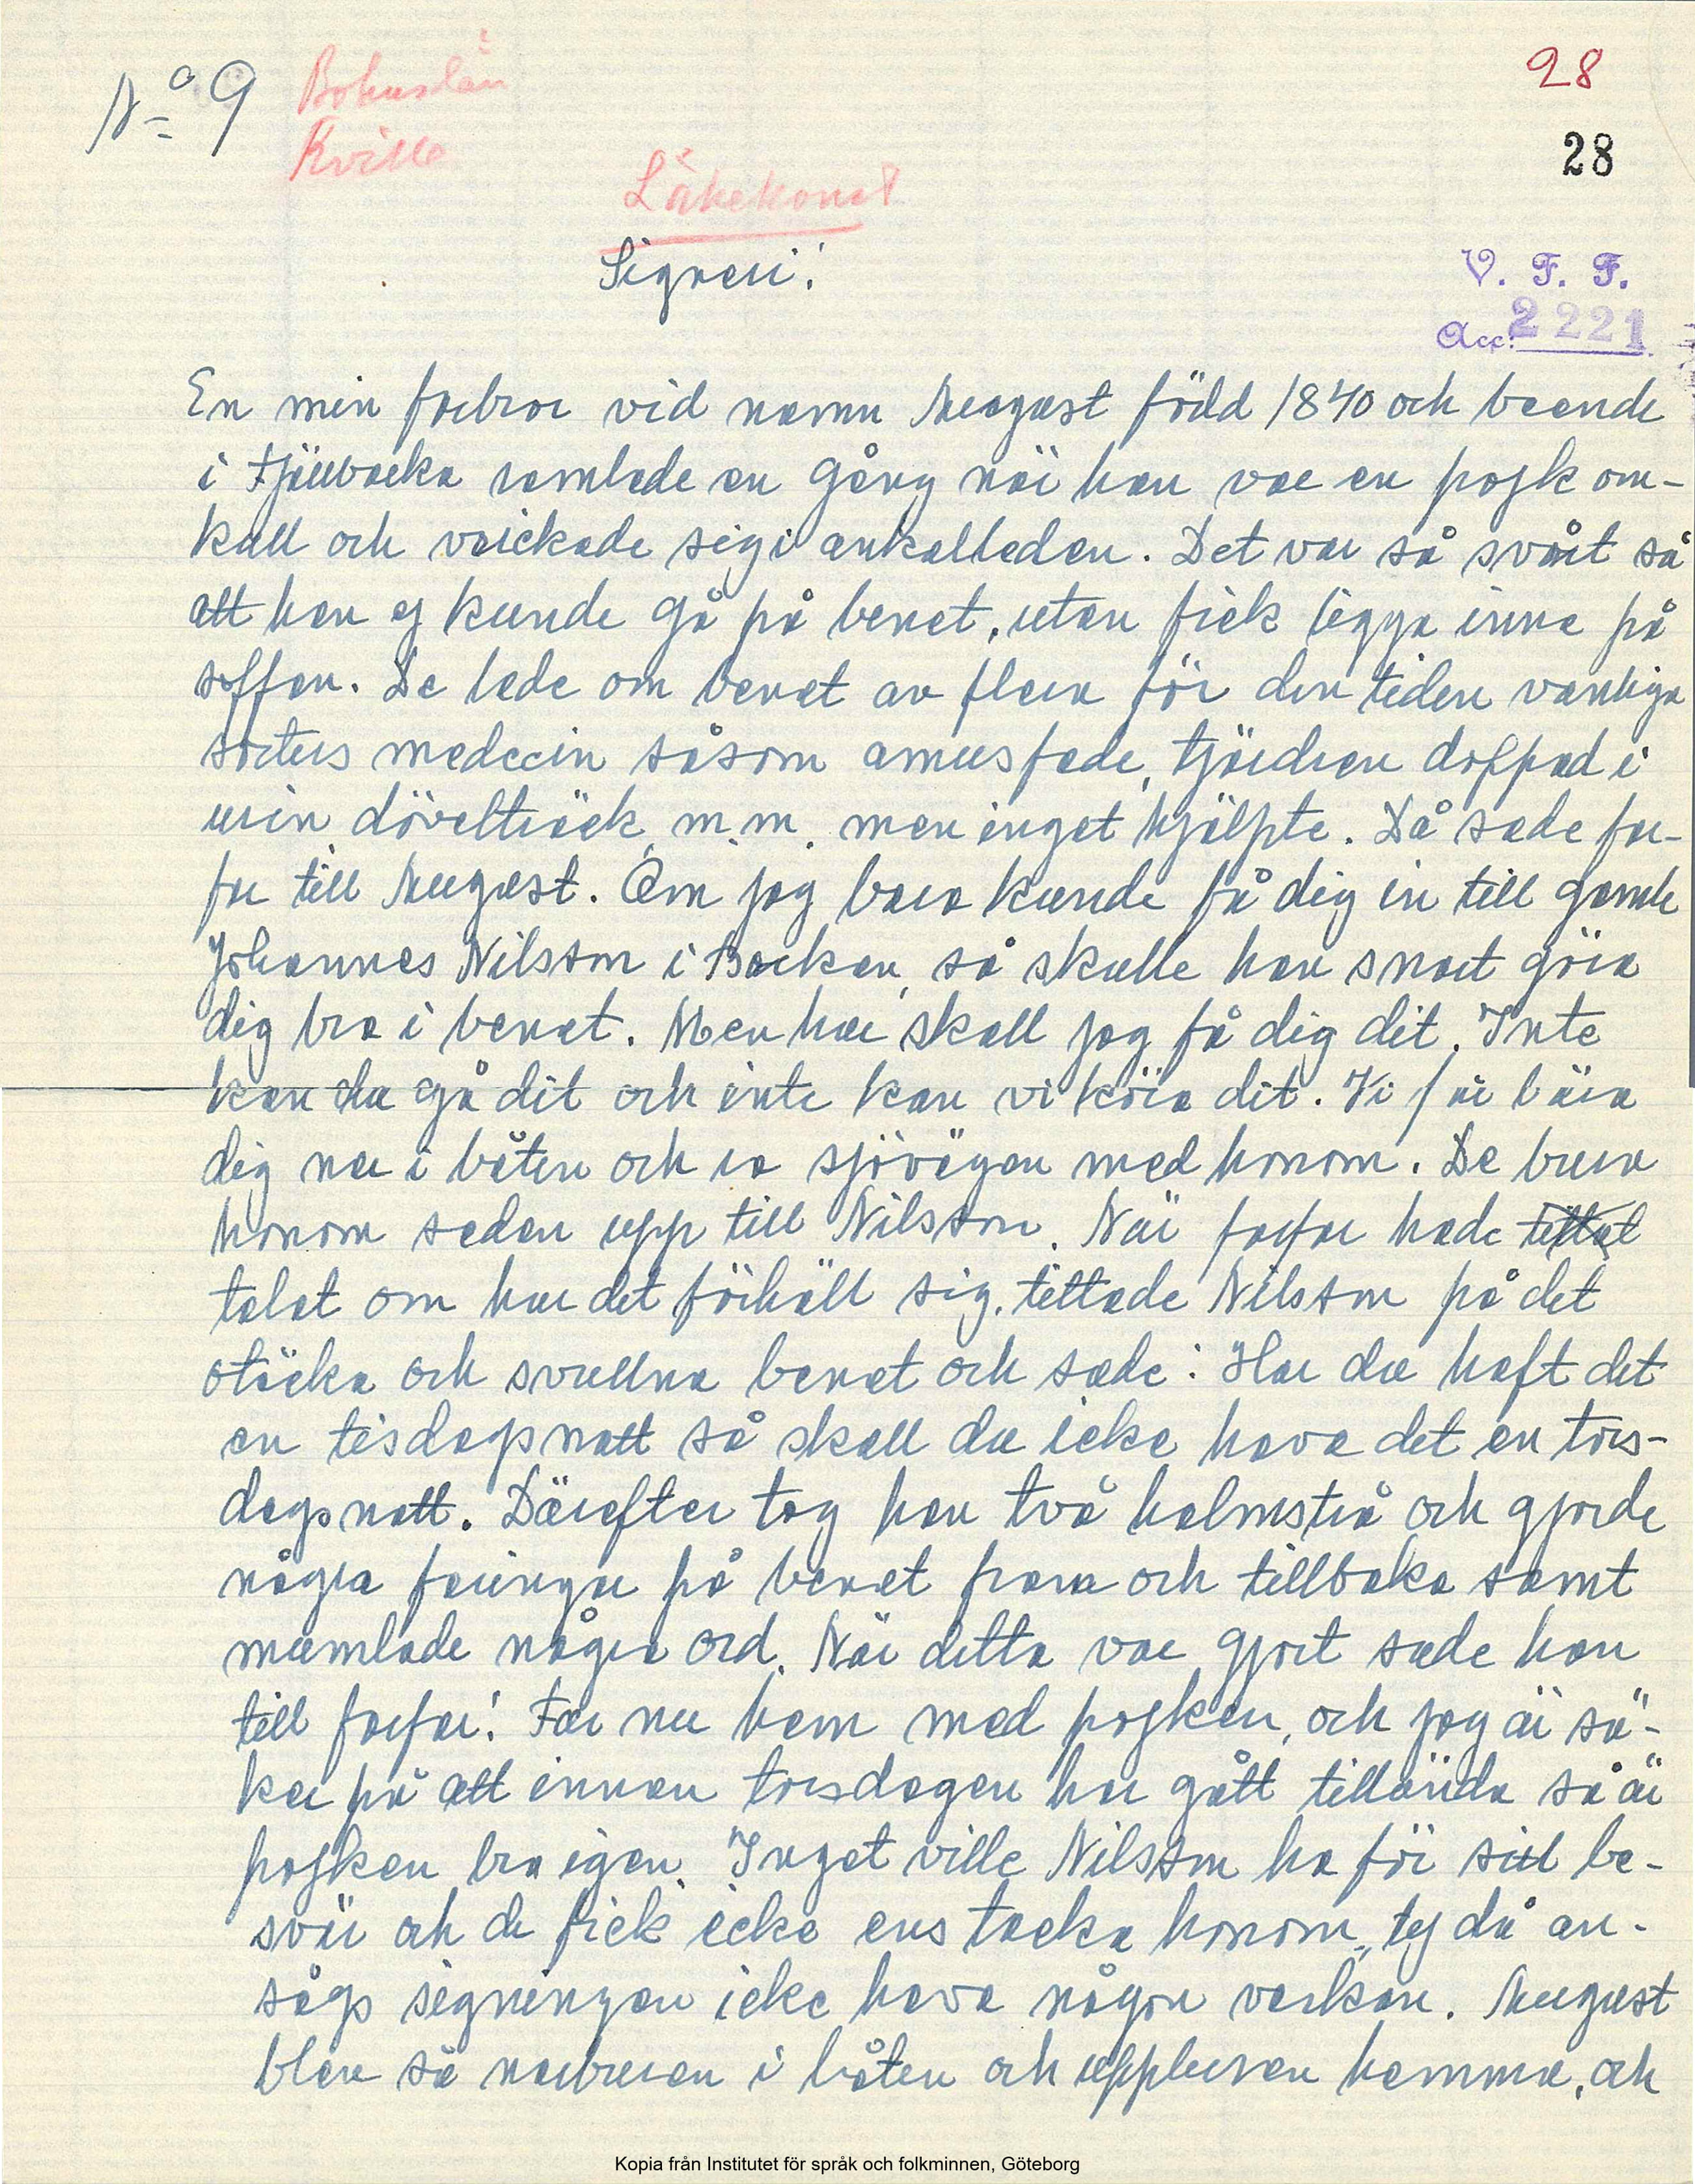 No 9
Bohuslän
Kville
28
28
Läkekonst
Signeri!
V. F. F.
Acc: 2221
En min farbror vid namn August född 1840 och boende
i Fjällbacka ramlade en gång när han var en pojk om-
kull och vrickade sig i ankelleden. Det var så svårt så
att han ej kunde gå på benet, utan fick ligga inne på
soffan. De lade om benet av flera för den tiden vanliga
sorters medecin såsom tjärdrev doppad i
urin, dövelträck, m.m. men inget hjälpte. Då sade far-
far till August. Om jag bara kunde få dig in till gamle
Johannes Nilsson i Backen, så skulle han snart göra
dig bra i benet. Men hur skall jag få dig dit. Inte
kan du gå dit och inte kan vi köra dit. Vi får bära
dig ner i båten och ro sjövägen med honom. De buro
honom sedan upp till Nilsson. När farfar hade
talat om hur det förhöll sig, tittade Nilsson på det
otäcka och svullna benet och sade: Har du haft det
en tisdagsnatt så skall du icke hava det en tors-
dagsnatt. Därefter tog han två halmstrå och gjorde
några faringar på benet fram och tillbaka samt
mumlade några ord. När detta var gjort sade han
till farfar! Far nu hem med pojken, och jag är sä-
ker på att innan torsdagen har gått tillända så är
pojken bra igen. Inget ville Nilsson ha för sitt be-
svär och de fick icke ens tacka honom, ty då an-
sågs signingen icke hava någon verkan. August
blev så nerburen i båten och uppburen hemma, och
Kopia från Institutet för språk och folkminnen, Göteborg